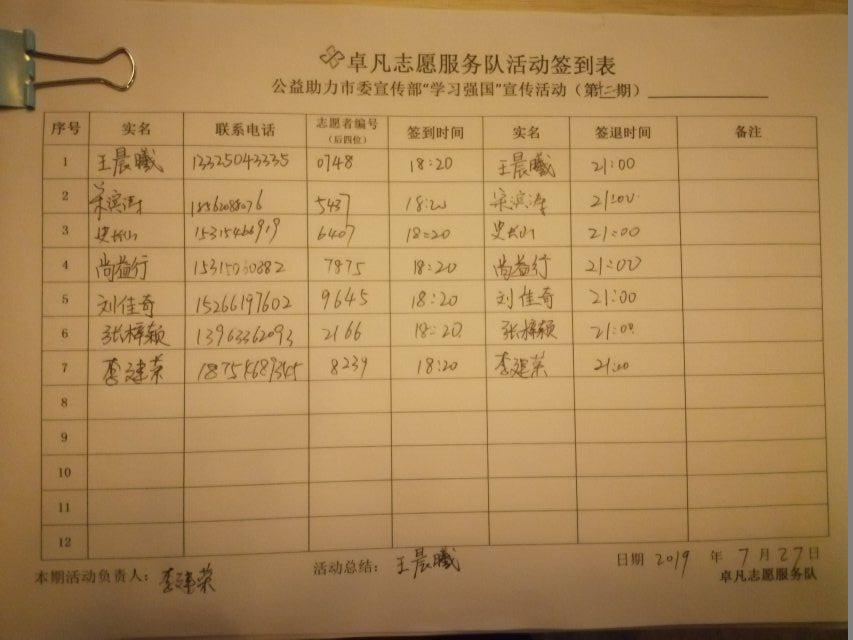 卓凡志愿服务队活动签到表
公益助力市委宣传部“学习强国”宣传活动（第十二期）
序号 实名 联系电话 志愿者编号（后四位） 签到时间 实名 签退时间 备注
1 王晨曦 13325043335 0748 18:20 王晨曦 21:00
2 宋滨涛 5437 18:20 宋滨涛 21:00
3 史长山 6407 18:20 史长山 21:00
4 尚益行 7875 18:20 尚益行 21:00
5 刘佳奇 15266197602 9645 18:20 刘佳奇 21:00
6 张梓颖 13963362093 2166 18:20 张梓颖 21:00
7 李建荣 8239 18:20 李建荣 21:00
8
9
10
11
12
本期活动负责人：李建荣 活动总结：王晨曦 日期 2019 年 7 月 27 日
卓凡志愿服务队